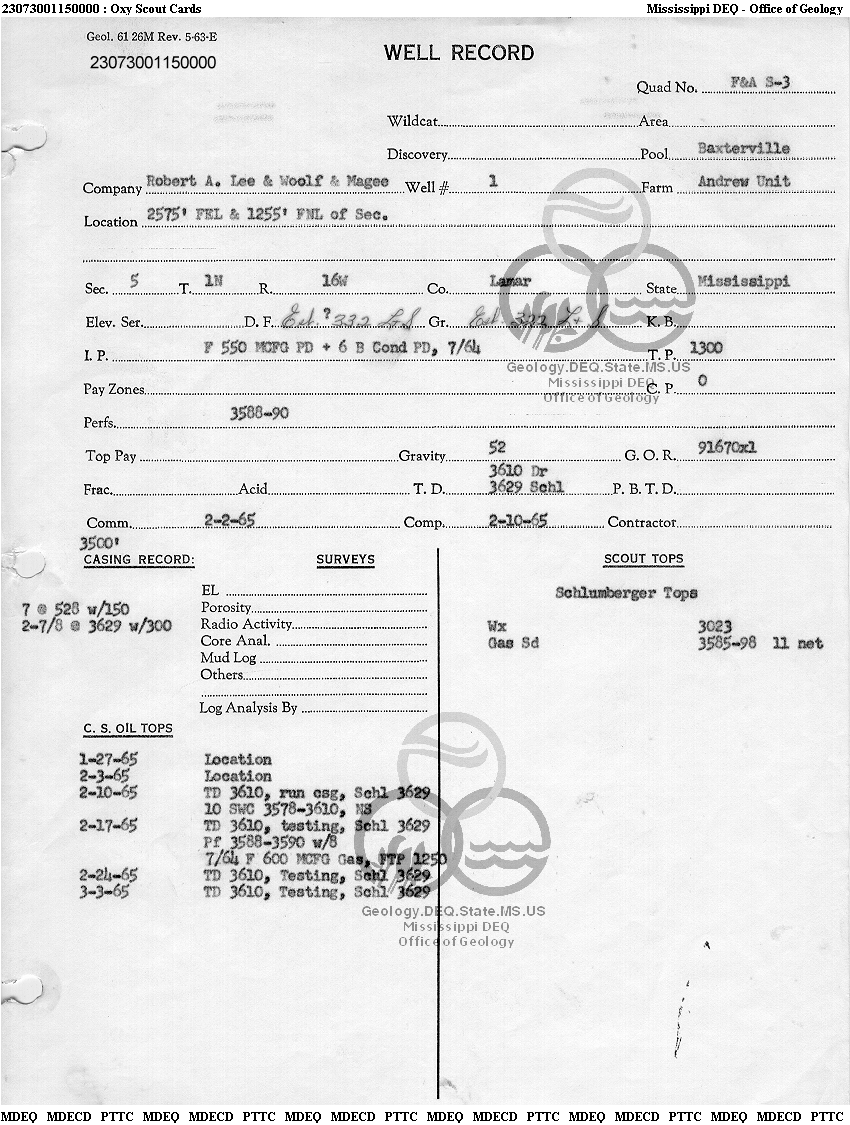 23073001150000 : Oxy Scout Cards Mississippi DEQ - Office of Geology
Geol. 61 26M Rev. 5-63-E
23073001150000
WELL RECORD
Quad No. F&A S-3
Wildcat Area
Discovery Pool Baxterville
Company Robert A. Lee & Woolf & Magee Well # 1 Farm Andrew Unit
Location 2575' FEL & 1255' FNL of Sec.
Sec. 5 T. 1N R. 16W Co. Lamar State Mississippi
Elev. Ser. D. F. Est. ? 332 Gr. Est. 322 K. B.
I. P. F 550 MCFG PD + 6 B Cond PD, 7/64 T. P. 1300
Geology.DEQ.State.MS.US
Mississippi DEQ
Office of Geology
Pay Zones C. P. 0
Perfs. 3588-90
Top Pay Gravity 52 G. O. R. 91670x1
3610 Dr
Frac. Acid T. D. 3629 Schl P. B. T. D.
Comm. 2-2-65 Comp. 2-10-65 Contractor
3500'
CASING RECORD: SURVEYS SCOUT TOPS
EL
Schlumberger Tops
7 @ 528 w/150 Porosity
2-7/8 @ 3629 w/300 Radio Activity Wx 3023
Core Anal. Gas Sd 3585-98 11 net
Mud Log
Others
Log Analysis By
C. S. OIL TOPS
1-27-65 Location
2-3-65 Location
2-10-65 TD 3610, run csg, Schl 3629
10 SWC 3578-3610, NS
2-17-65 TD 3610, testing, Schl 3629
Pf 3588-3590 w/8
7/64 F 600 MCFG Gas, FTP 1250
2-24-65 TD 3610, Testing, Schl 3629
3-3-65 TD 3610, Testing, Schl 3629
Geology.DEQ.State.MS.US
Mississippi DEQ
Office of Geology
MDEQ MDECD PTTC MDEQ MDECD PTTC MDEQ MDECD PTTC MDEQ MDECD PTTC MDEQ MDECD PTTC MDEQ MDECD PTTC